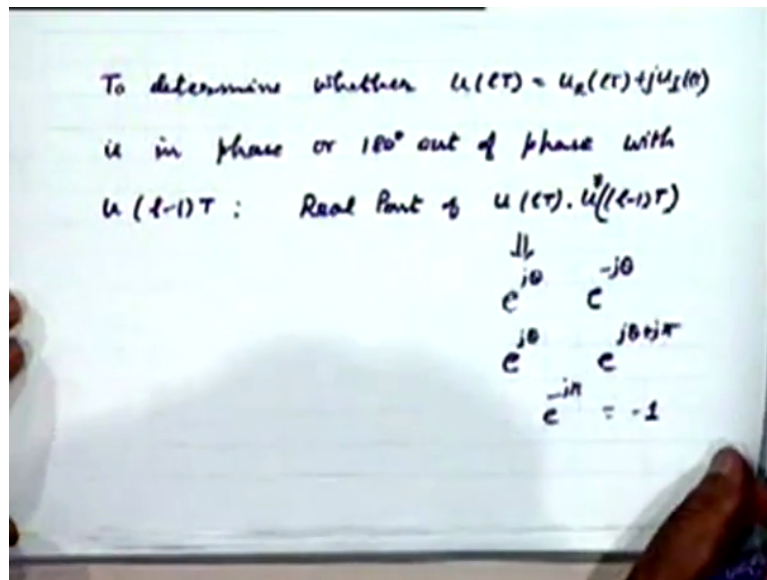 To determine whether u(lT) = u_R(lT) + ju_I(lT)
is in phase or 180° out of phase with
u(l-1)T : Real Part of u(lT). u*((l-1)T)
⇓
e^{jθ} e^{-jθ}
e^{jθ} e^{jθ+jπ}
e^{-jπ} = -1